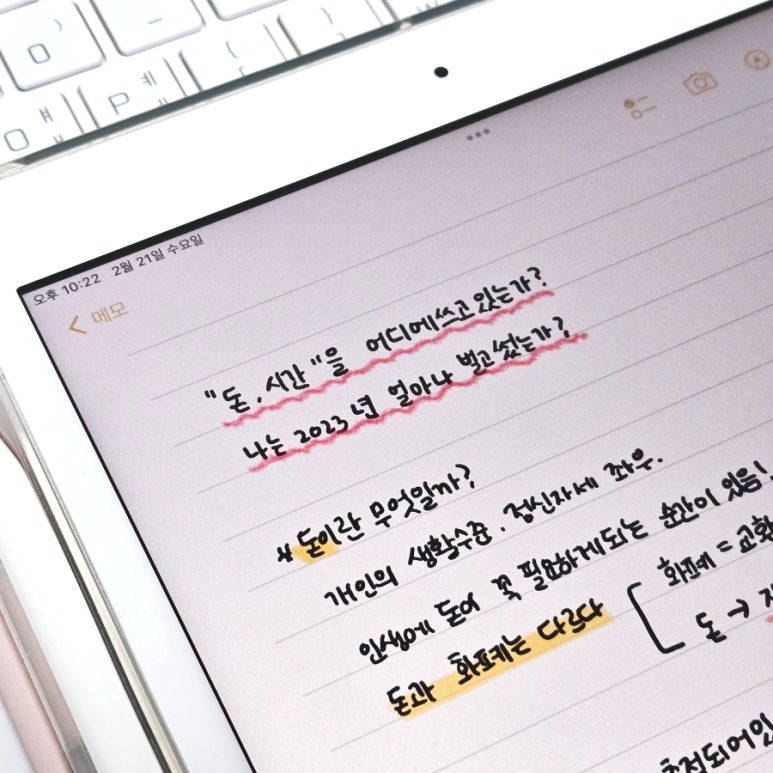 오후 10:22 2월 21일 수요일
메모
"돈, 시간"을 어디에쓰고있는가?
나는 2023년 얼마나 벌고썼는가?
* 돈이란 무엇일까?
개인의 생활수준, 정신자세 좌우.
인생에 돈이 꼭 필요하게되는 순간이 있음!
돈과 화폐는 다르다
화폐 = 교환
돈 →